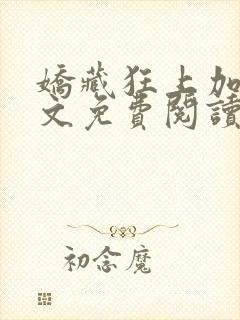 嬌藏狂上加
文免費閱讀
初念魔